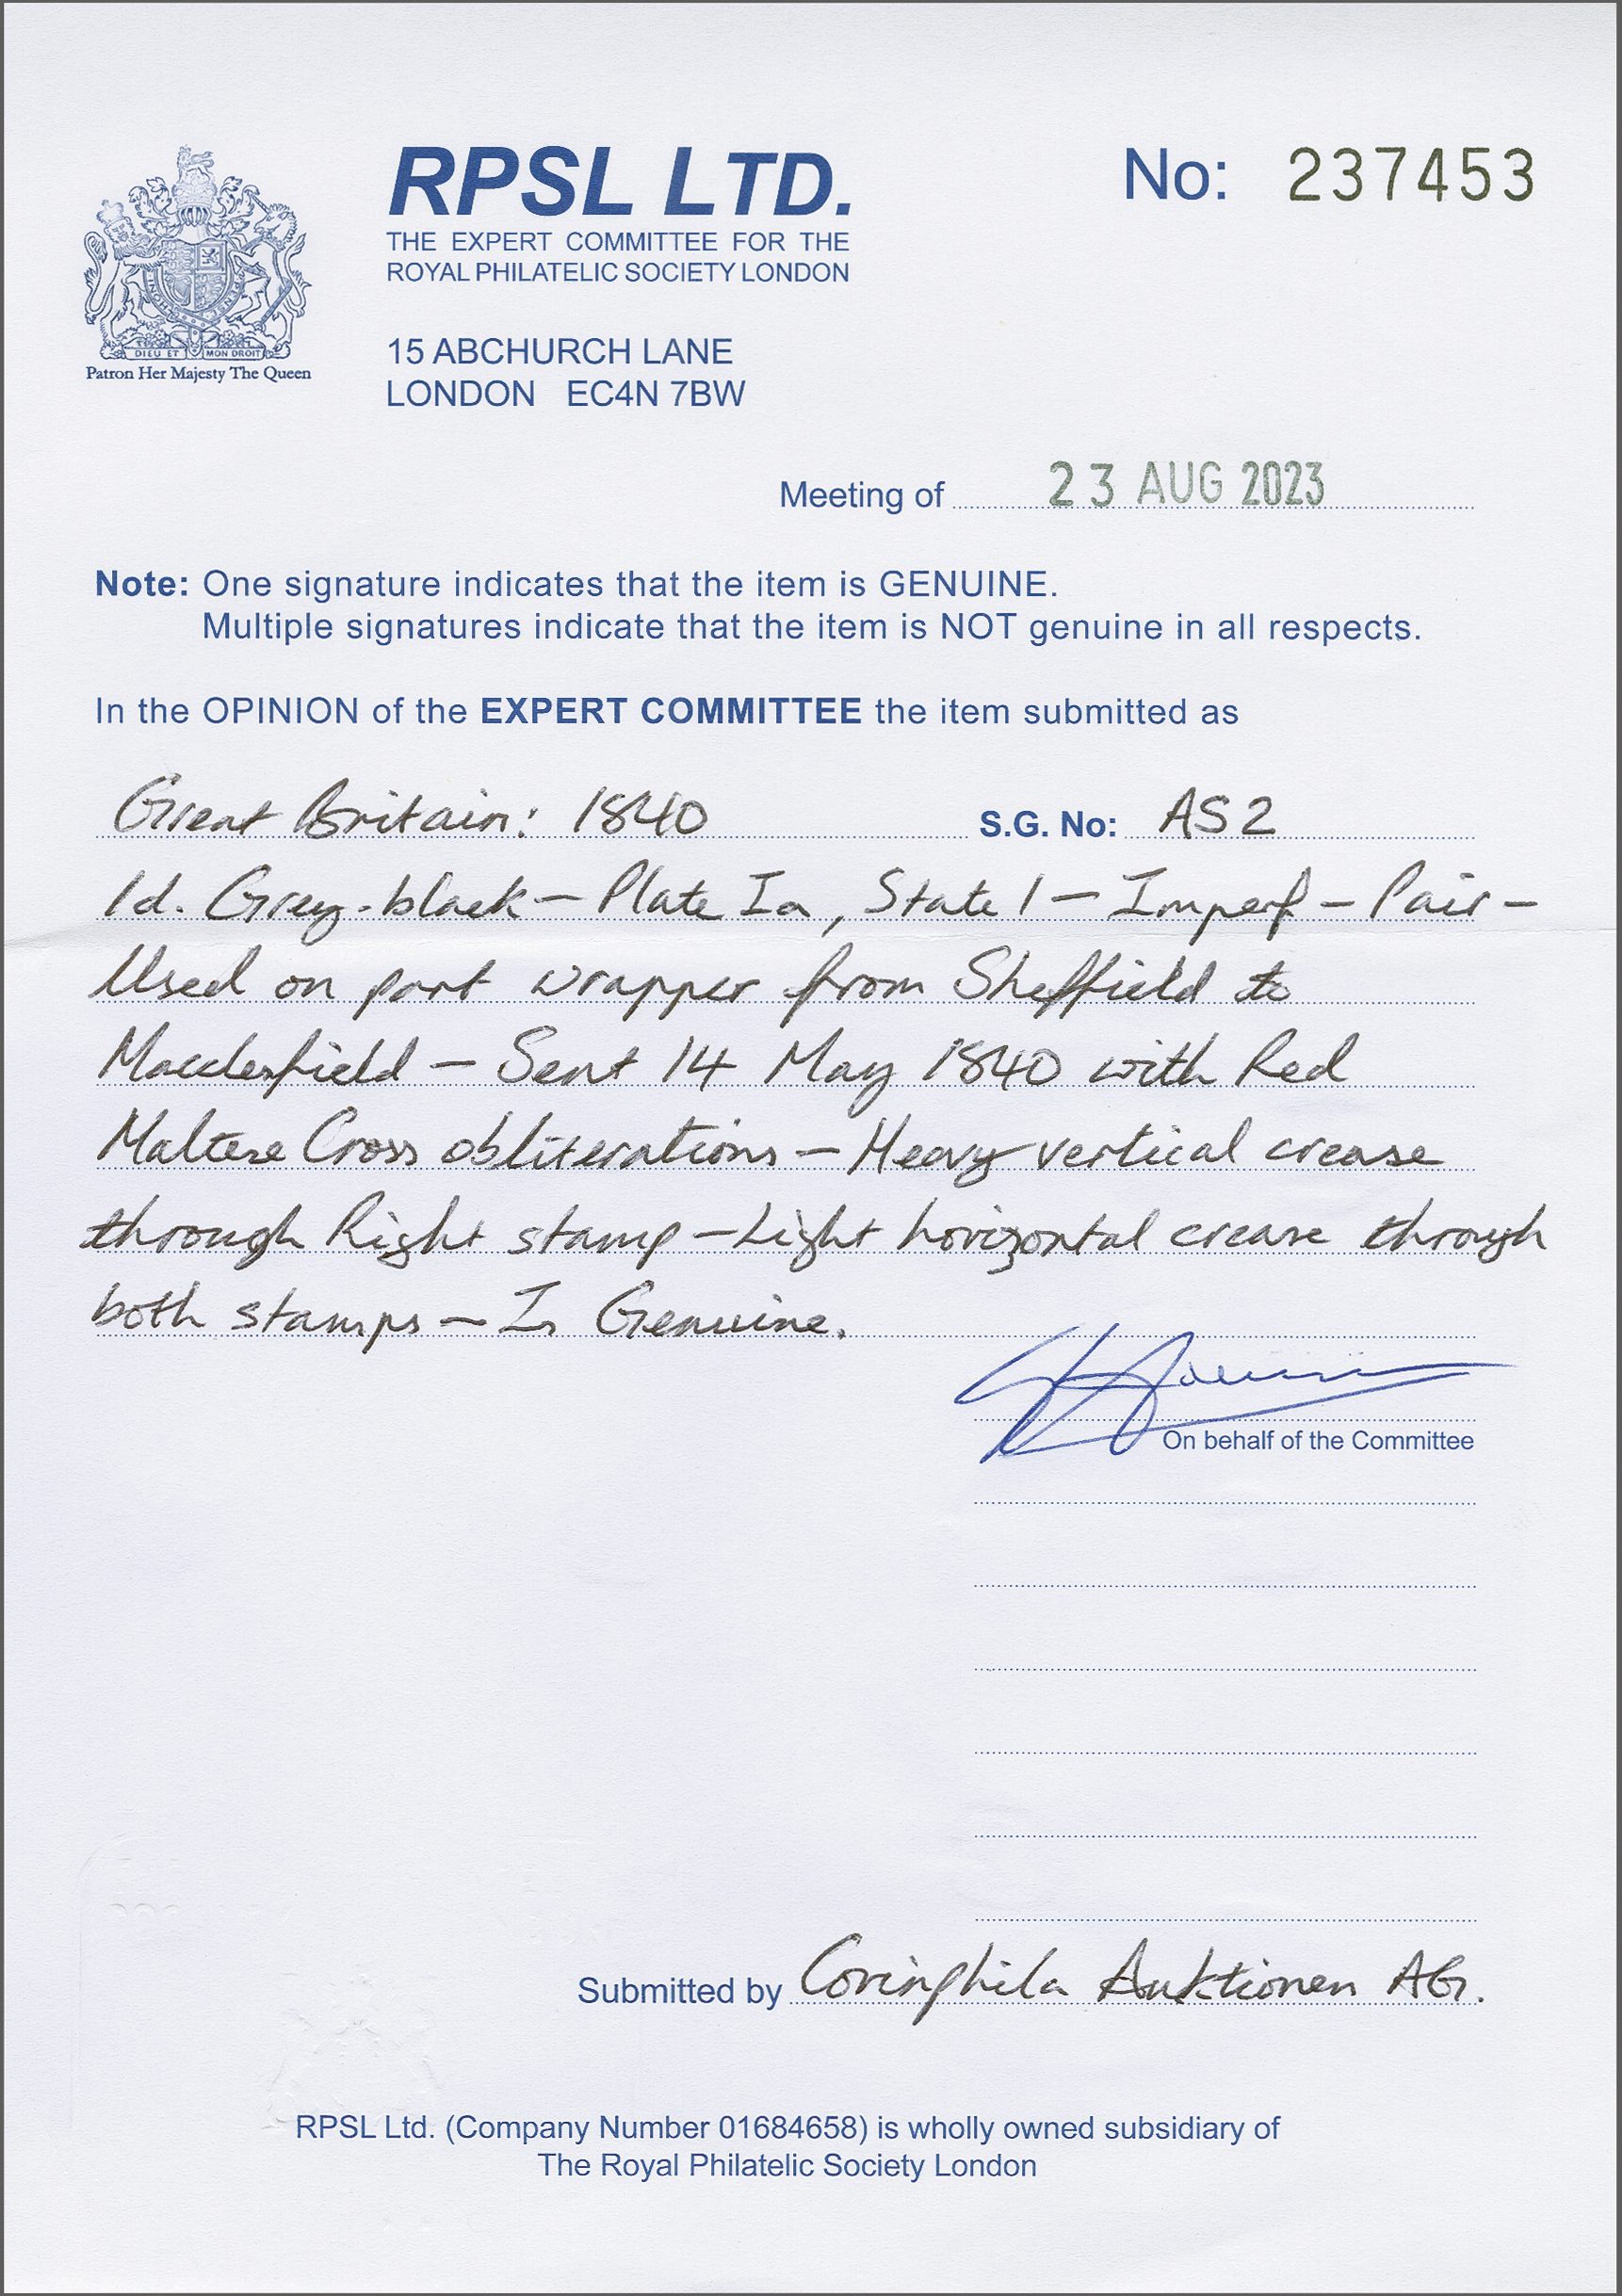 RPSL LTD.
THE EXPERT COMMITTEE FOR THE
ROYAL PHILATELIC SOCIETY LONDON
15 ABCHURCH LANE
LONDON EC4N 7BW
No: 237453
DIEU ET MON DROIT
Patron Her Majesty The Queen
Meeting of 23 AUG 2023
Note: One signature indicates that the item is GENUINE.
Multiple signatures indicate that the item is NOT genuine in all respects.
In the OPINION of the EXPERT COMMITTEE the item submitted as
Great Britain: 1840 S.G. No: AS2
1d. Grey-black – Plate Ia, State 1 – Imperf – Pair –
Used on part wrapper from Sheffield to
Macclesfield – Sent 14 May 1840 with Red
Maltese Cross obliterations – Heavy vertical crease
through Right stamp – Light horizontal crease through
both stamps – Is Genuine.
On behalf of the Committee
Submitted by Corinphila Auktionen AG.
RPSL Ltd. (Company Number 01684658) is wholly owned subsidiary of
The Royal Philatelic Society London